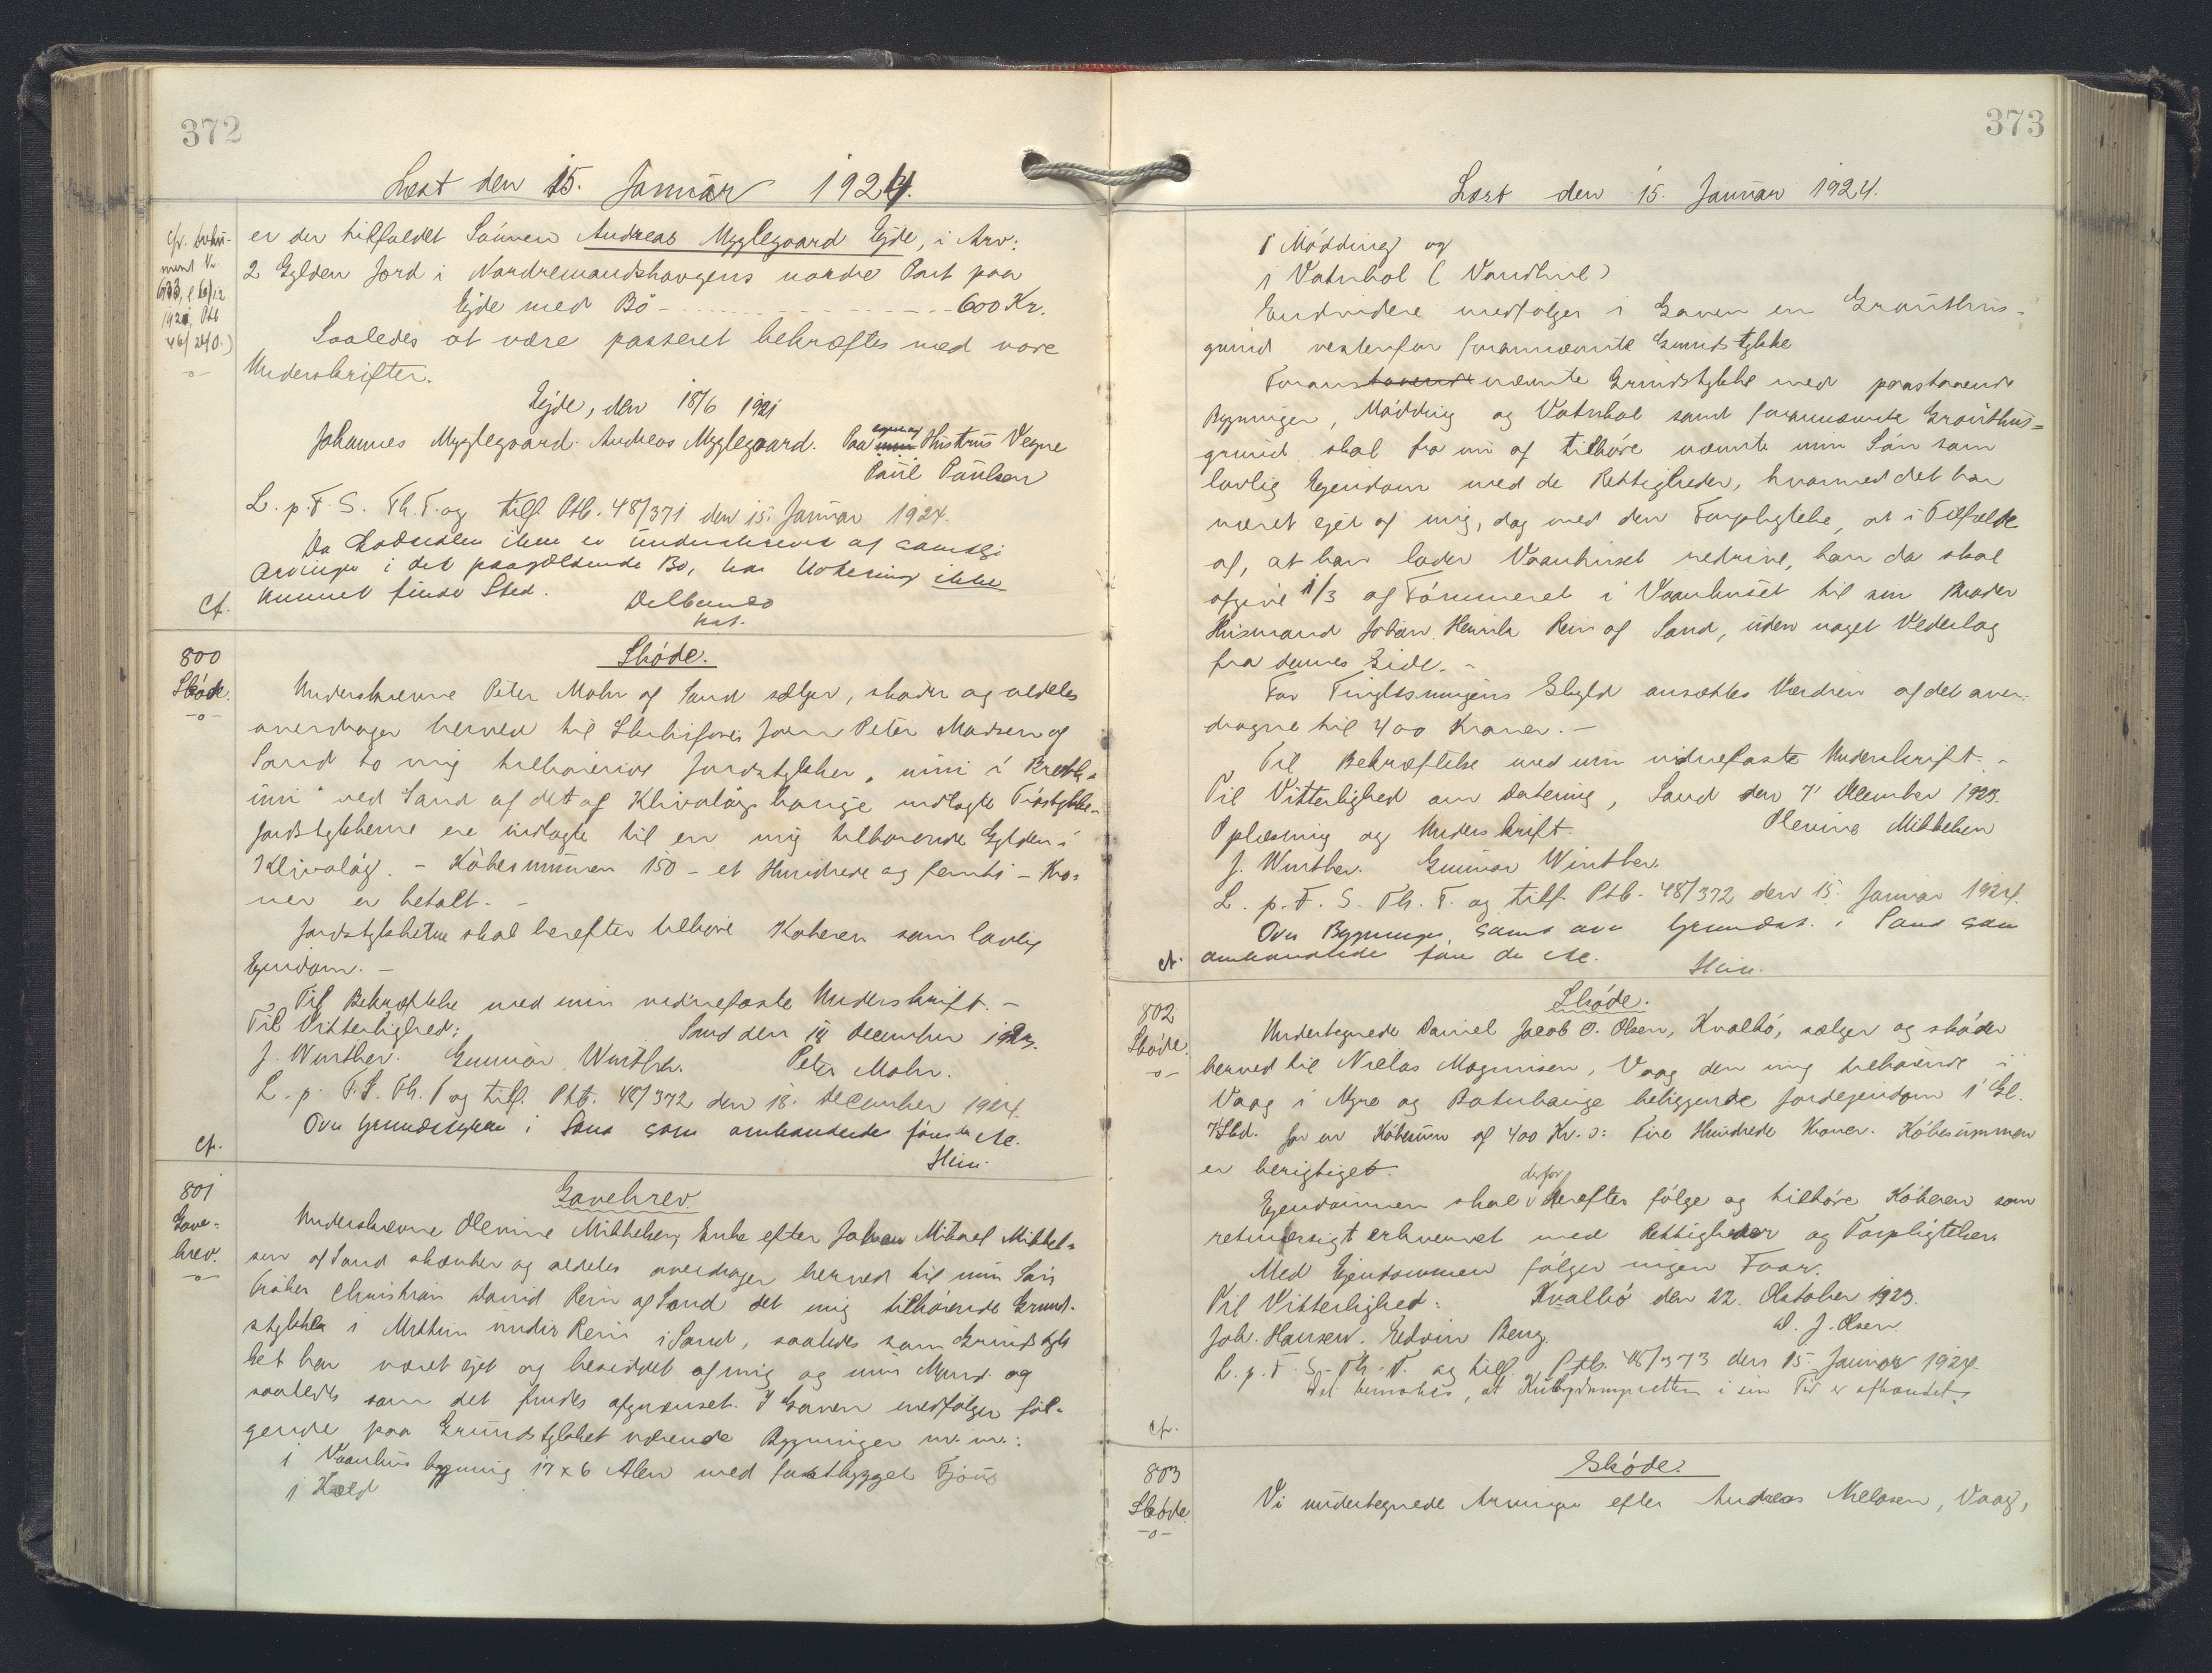 372
Læst den 15. Januar 1924.
er der tilfaldet Sönnen Andreas Mygglegaard Ejde, i Arv:
2 Gylden Jord i Nordremandshaugens nordre Part paa
Ejde med Bö - - - - 600 Kr.
Saaledes at være passeret bekræftes med vore
Underskrifter.
Ejde, den 18/6 1921
Johannes Mygglegaard. Andreas Mygglegaard. Paa egne og min Hustrus Vegne
Paul Paulsen
L. p. F. S. Th. T. og tilf. Ptb. 48/371 den 15. Januar 1924.
Da Lodseddelen ikke er underskreven af samtlige
Arvinger i det paagældende Bo, har Notering ikke
kunnet finde Sted.
Cf.
800
Sköde.
-o-
Sköde.
Underskrevne Peter Mohr af Sand sælger, skøder og aldeles
overdrager herved til Skibsfører Joen Peter Madsen af
Sand to mig tilhørende Jordstykker
ved Sand af det af Klivalög hauge udlagte Tröstykke.
Jordstykkerne ere udlagte til en mig tilhørende Gylden i
Klivalög. - Köbesummen 150 - et Hundrede og femti - Kro-
ner er betalt. -
Jordstykkerne skal herefter tilhöre Køberen som lovlig
Ejendom. -
Til Bekræftelse med min vidnefaste Underskrift. -
Til Vitterlighed: Sand den 18 December 1923.
J. Winther. Gunnar Winther. Peter Mohr.
L. p. F. S. Th. T. og tilf. Ptb. 48/372 den 18. December 1924.
Ovn Grundstykke i Sand som ombandende föres der etc.
Cf. Hein.
801
Gave-
brev.
-o-
Gavebrev.
Underskrevne Olevine Mikkelsen, Enke efter Johan Mikael Mikkel-
sen af Sand skænker og aldeles overdrager herved til min Sön
Træker Christian David Rein af Sand det mig tilhörende Grund-
stykke i Mittun under Rein i Sand, saaledes som Grundstyk
ket har været ejet og besiddet af mig og min Mand og
saaledes som det findes afgrænset. I Gaven medfølger föl-
gende paa Grundstykket værende Bygninger m. m.:
1 Vaanhus bygning 17 x 6 Alen med fastbygget Fjöus
1 Kæld
373
Læst den 15. Januar 1924.
1 Mödding og
1 Vatnhol (Vandhul)
Endvidere medfølger i Gaven en Gröuthus-
grund vestenfor forannævnte Grundstykke
Forannævnte Grundstykke med paastaaende
Bygninger, Mödding og Vatnhol samt forannævnte Gröuthus-
grund skal fra nu af tilhöre nævnte min Sön som
lovlig Ejendom med de Rettigheder, hvormed det har
været ejet af mig, dog med den Forpligtelse, at i Tilfælde
af, at han lader Vaanhuset nedrive, han da skal
afgive 1/3 af Tömmeret i Vaanhuset til sin Broder
Husmand Johan Henrik Rein af Sand, uden noget Vederlag
fra dennes Side. -
For Tinglæsningens Skyld ansættes Værdien af det over-
dragne til 400 Kroner. -
Til Bekræftelse med min vidnefaste Underskrift. -
Til Vitterlighed om Datering, Sand den 7' December 1923.
Oplæsning og Underskrift. Olevine Mikkelsen
J. Winther. Gunnar Winther.
L. p. F. S. Th. T. og tilf. Ptb. 48/372 den 15. Januar 1924.
Ovn Bygninger, samt ovn Grundst. i Sand som
Cf. Hein.
802
Sköde.
-o-
Sköde.
Undertegnede Daniel Jacob O. Olsen, Kvalbö, sælger og sköder
herved til Niclas Magnusen, Vaag den mig tilhørende i
Vaag i Myre og Botnhauge beliggende Jordejendom 1 Gl.
7 Skd. for en Köbesum af 400 Kr. ɔ: Fire Hundrede Kroner. Köbesummen
er berigtiget.
Ejendommen skal derfor herefter fölge og tilhöre Köberen som
retmæssigt erhvervet med Rettigheder og Forpligtelser.
Med Ejendommen fölger ingen Faar.
Til Vitterlighed: Kvalbö den 22. Oktober 1923.
Joh. Hansen. Edvin Berg. D. J. Olsen
L. p. F. S. Th. T. og tilf. Ptb. 48/373 den 15. Januar 1924.
Det bemærkes, at i sin Tid er afhændet.
Cf.
803
Sköde
-o-
Sköde.
Vi undertegnede Arvinger efter Andreas Nielsen, Vaag,